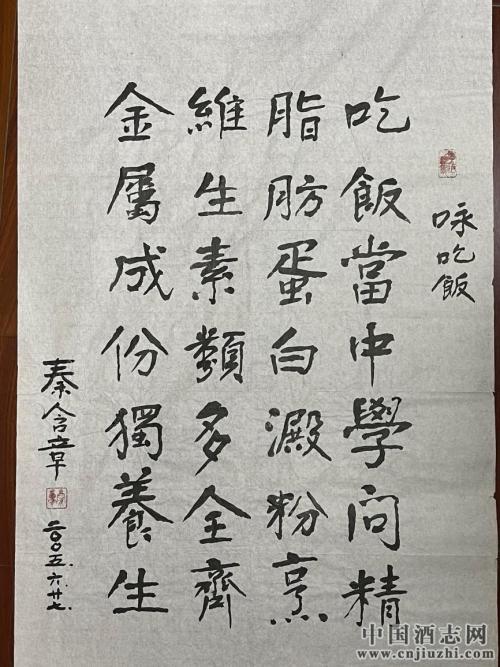 咏吃飯
吃飯當中學问精
脂肪蛋白澱粉烹
維生素類多全齊
金屬成份獨養生
秦含章
二〇〇五.六.廿七.
中国酒志网
www.cnjiuzhi.com